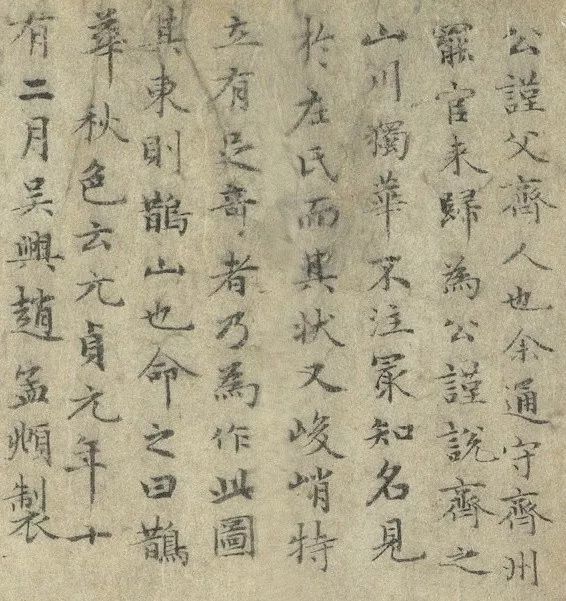 公謹父齊人也余通守齊州
罷官来歸為公謹說齊之
山川獨華不注冣知名見
於左氏而其状又峻峭特
立有足奇者乃為作此圖
其東則鵲山也命之曰鵲
華秋色云元貞元年十
有二月吳興趙孟頫製